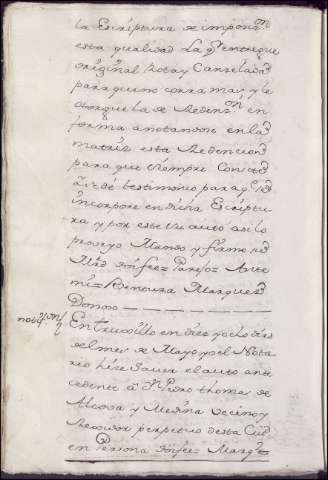 la Escriptura de imposiⁿ
esta qualidad la qᵉ entregue
original Rota y Cancelada
para que no corra mas, y le
otorgue la de Redenⁿ en
forma anotandose en la
matriz esta Redencion
para que siempre Conste
de testimonio para qᵉ se
incorpore en dicha Escriptu-
ra y por este su auto asi lo
proveyo Mando y firmo
doifee= Ante
mi= Ventura Marques
Donoso
notifⁿ En Truxillo en diez y ocho dias
del mes de Mayo yo el Nota-
rio hice Saver el auto ante
cedente a Dⁿ Pedro thomas de
y Medina vecino y
Rexidor perpetuo desta Ciuᵈ
en Persona doifee= Marqˢ